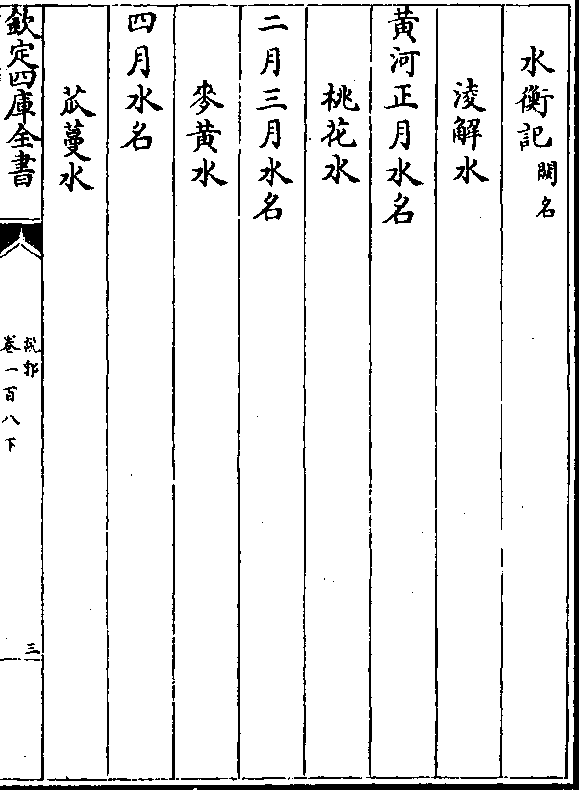 水衡記闕名
淩解水
黃河正月水名
桃花水
二月三月水名
麥黃水
四月水名
苽蔓水
欽定四庫全書
說郛
卷一百八下
三